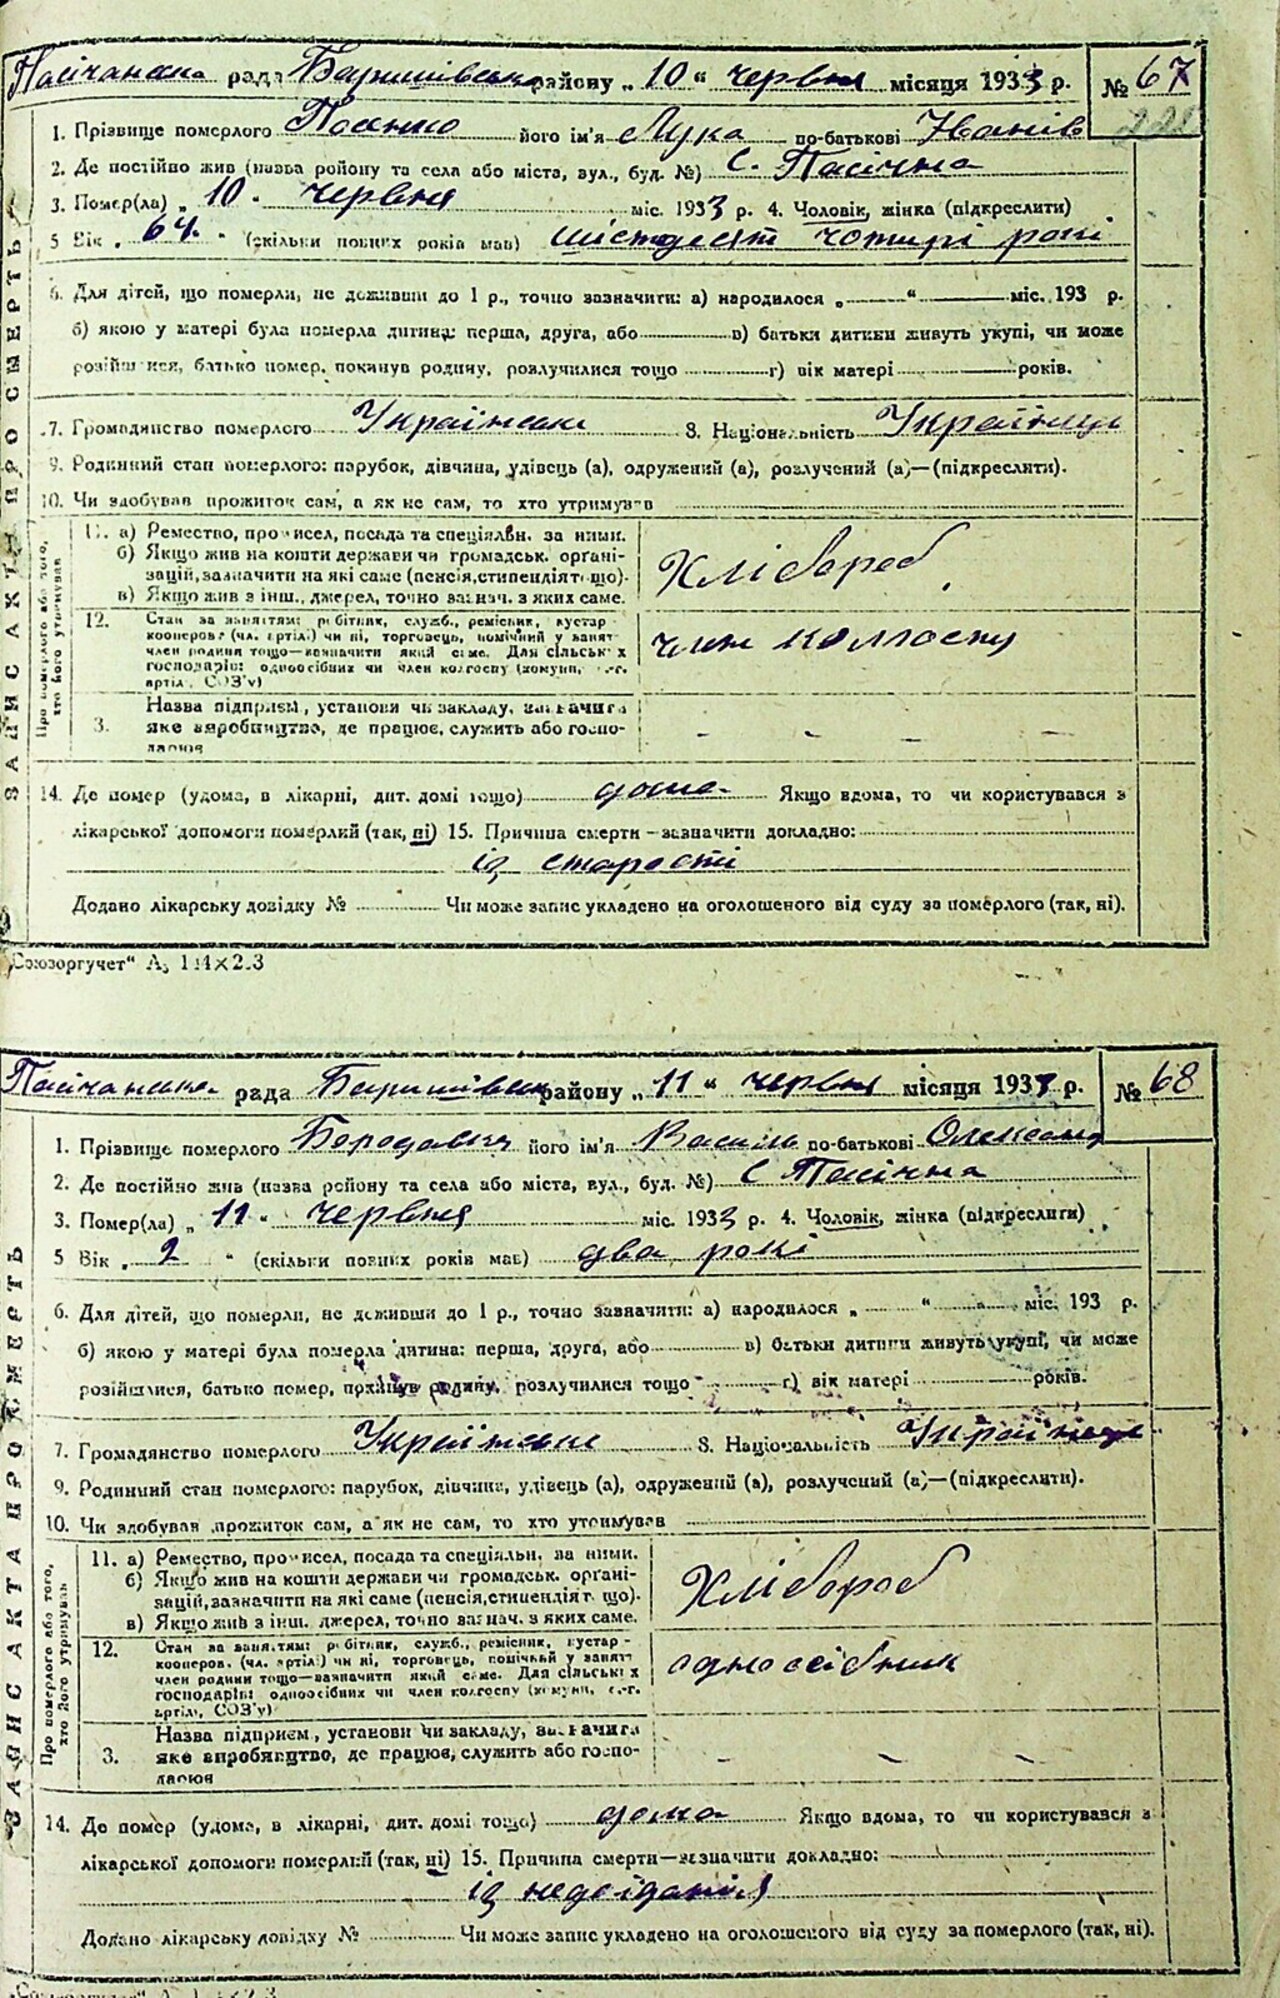 Пасічанська рада Баришівськ району „ 10 “ червня місяця 1933 р. № 67
1. Прізвище померлого його ім'я Лука по-батькові Іванів
2. Де постійно жив (назва району та села або міста, вул., буд. №) С. Пасічна
3. Помер(ла) „ 10 " червня міс. 1933 р. 4. Чоловік, жінка (підкреслити)
5 Вік „ 64. " (скільки повних років мав) шістдесят чотирі рокі
6. Для дітей, що померли, не доживши до 1 р., точно зазначити: а) народилося „ “ міс. 193 р.
б) якою у матері була померла дитина: перша, друга, або в) батьки дитини живуть укупі, чи може
розійшлися, батько помер, покинув родину, розлучилися тощо г) вік матері років.
7. Громадянство померлого Українське 8. Національність Українець
9. Родинний стан померлого: парубок, дівчина, удівець (а), одружений (а), розлучений (а)—(підкреслити).
10. Чи здобував прожиток сам, а як не сам, то хто утримував
ЗАПИС АКТА ПРО СМЕРТЬ
Про померлого або того, хто його утримував
11. а) Ремество, промисел, посада та спеціяльн. за ними.
б) Якщо жив на кошти держави чи громадськ. органі-
зацій, зазначити на які саме (пенсія, стипендія тощо).
в) Якщо жив з інш. джерел, точно зазнач. з яких саме.
Хлібороб
12. Стан за заняттям: робітник, служб., ремісник, кустар -
кооперов. (чл. артілі) чи ні, торговець, помічний у занят-
член родини тощо—зазначити який саме. Для сільських
господарів: одноосібних чи член колгоспу (комуни, с.-г.
артіл., СОЗ'у)
член колгоспу
Назва підприєм., установи чи закладу, зазначити
3. яке виробництво, де працює, служить або госпо-
дарює
- - - -
14. Де помер (удома, в лікарні, дит. домі тощо) дома Якщо вдома, то чи користувався з
лікарської допомоги померлий (так, ні) 15. Причина смерти—зазначити докладно:
із старості
Додано лікарську довідку № Чи може запис укладено на оголошеного від суду за померлого (так, ні).
„Союзоргучет“
Пасічанська рада Баришівськ району „ 11 “ червня місяця 1933 р. № 68
1. Прізвище померлого Бородавка його ім'я Василь по-батькові Олександ
2. Де постійно жив (назва району та села або міста, вул., буд. №) С Пасічна
3. Помер(ла) „ 11 " червня міс. 1933 р. 4. Чоловік, жінка (підкреслити)
5 Вік „ 2 " (скільки повних років мав) два рокі
6. Для дітей, що померли, не доживши до 1 р., точно зазначити: а) народилося „ “ міс. 193 р.
б) якою у матері була померла дитина: перша, друга, або в) батьки дитини живуть укупі, чи може
розійшлися, батько помер, покинув родину, розлучилися тощо г) вік матері років.
7. Громадянство померлого Українське 8. Національність Українець
9. Родинний стан померлого: парубок, дівчина, удівець (а), одружений (а), розлучений (а)—(підкреслити).
10. Чи здобував прожиток сам, а як не сам, то хто утримував
ЗАПИС АКТА ПРО СМЕРТЬ
Про померлого або того, хто його утримував
11. а) Ремество, промисел, посада та спеціяльн. за ними.
б) Якщо жив на кошти держави чи громадськ. органі-
зацій, зазначити на які саме (пенсія, стипендія тощо).
в) Якщо жив з інш. джерел, точно зазнач. з яких саме.
Хлібороб
12. Стан за заняттям: робітник, служб., ремісник, кустар -
кооперов. (чл. артілі) чи ні, торговець, помічний у занят-
член родини тощо—зазначити який саме. Для сільських
господарів: одноосібних чи член колгоспу (комуни, с.-г.
артіл., СОЗ'у)
одноосібник
Назва підприєм., установи чи закладу, зазначити
3. яке виробництво, де працює, служить або госпо-
дарює
- - -
14. Де помер (удома, в лікарні, дит. домі тощо) дома Якщо вдома, то чи користувався з
лікарської допомоги померлий (так, ні) 15. Причина смерти—зазначити докладно:
із недоїданія
Додано лікарську довідку № Чи може запис укладено на оголошеного від суду за померлого (так, ні).